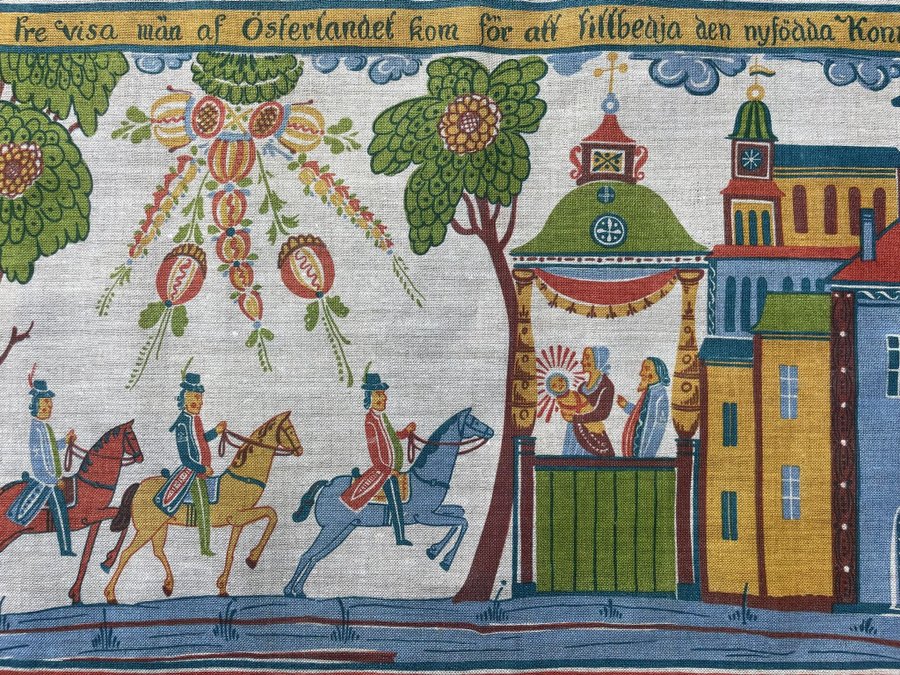 Tre visa män af Österlandet kom för att tillbedja den nyfödda Kon